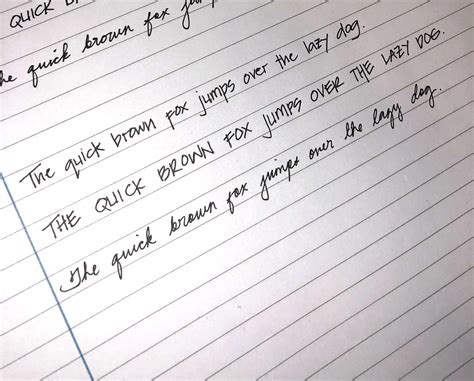 QUICK
he quick brown fox
The quick brown fox jumps over the lazy dog.
THE QUICK BROWN FOX JUMPS OVER THE LAZY DOG.
The quick brown fox jumps over the lazy dog.